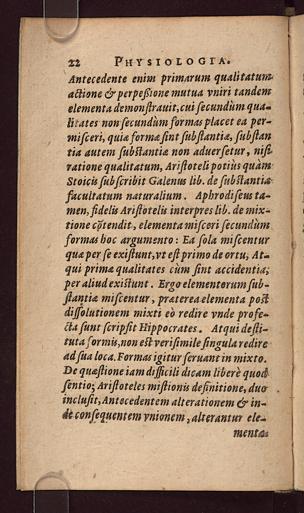 22 PHYSIOLOGIA.
Antecedente enim primarum qualitatum
actione & perpeßione mutua vniri tandem
elementa demonstrauit, cui secundùm qua-
litates non secundùm formas placet ea per-
misceri, quia formæ sint substantiæ, substan
tia autem substantiæ non aduersetur, nisi
ratione qualitatum, Aristoteli potiùs quàm
Stoicis subscribit Galenus lib. de substantia
facultatum naturalium. Aphrodiseus ta-
men, fidelis Aristotelis interpres lib. de mix-
tione cõtendit, elementa misceri secundùm
formas hoc argumento: Ea sola miscentur
quæ per se existunt, vt est primo de ortu, At-
qui prima qualitates cùm sint accidentia,
per aliud existunt. Ergo elementorum sub-
stantiæ miscentur, præterea elementa post
dissolutionem mixti eò redire vnde profe-
cta sunt scripsit Hippocrates. Atqui desti-
tuta formis, non est verisimile singula redire
ad sua loca. Formas igitur seruant in mixto.
De quæstione iam difficili dicam liberè quod
sentio; Aristoteles mistionis definitione, duo
inclusit, Antecedentem alterationem & in-
de consequentem vnionem, alterantur ele-
menta